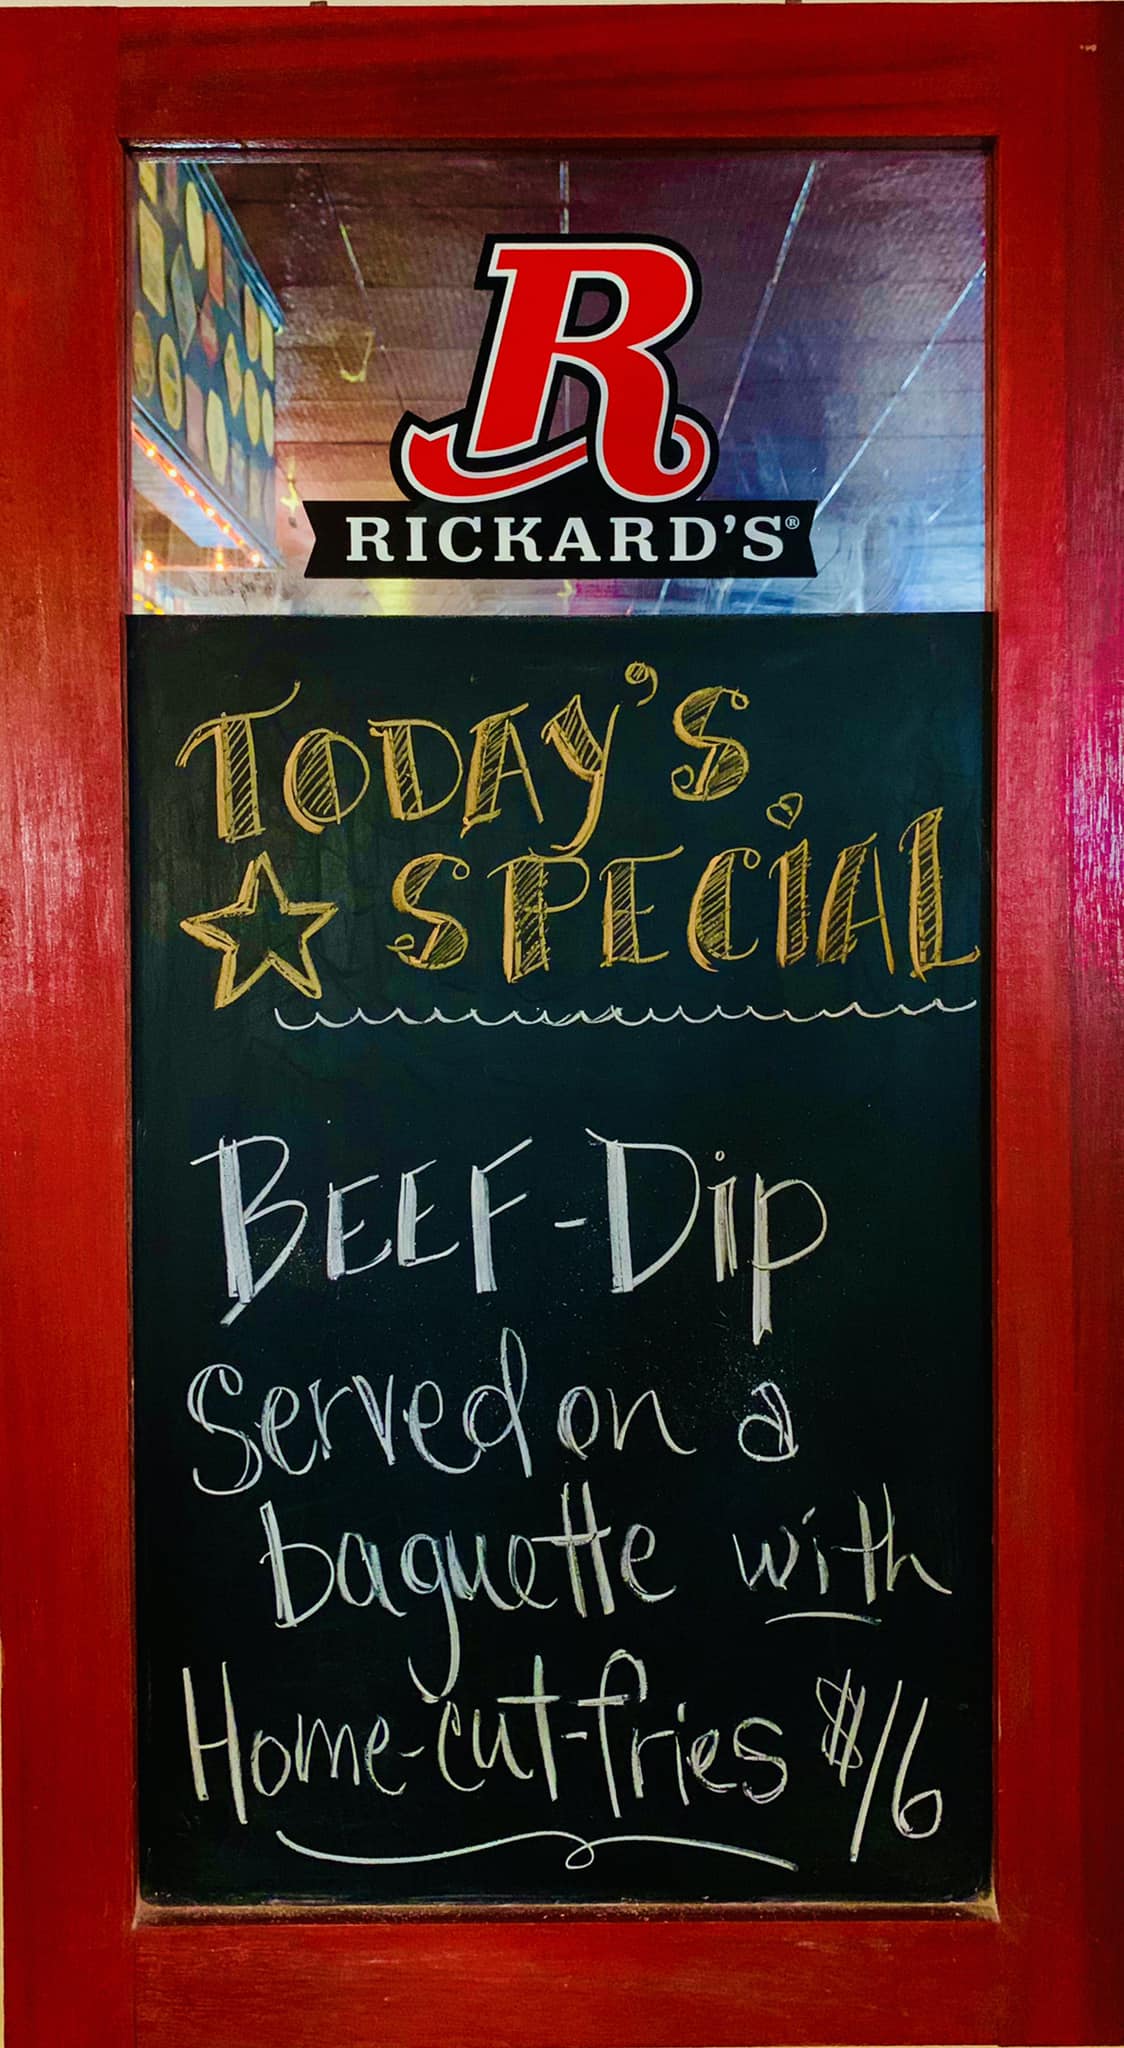 R
RICKARD'S®
TODAY'S
SPECIAL
BEEF-Dip
Served on a
baguette with
Home-cut-fries $16